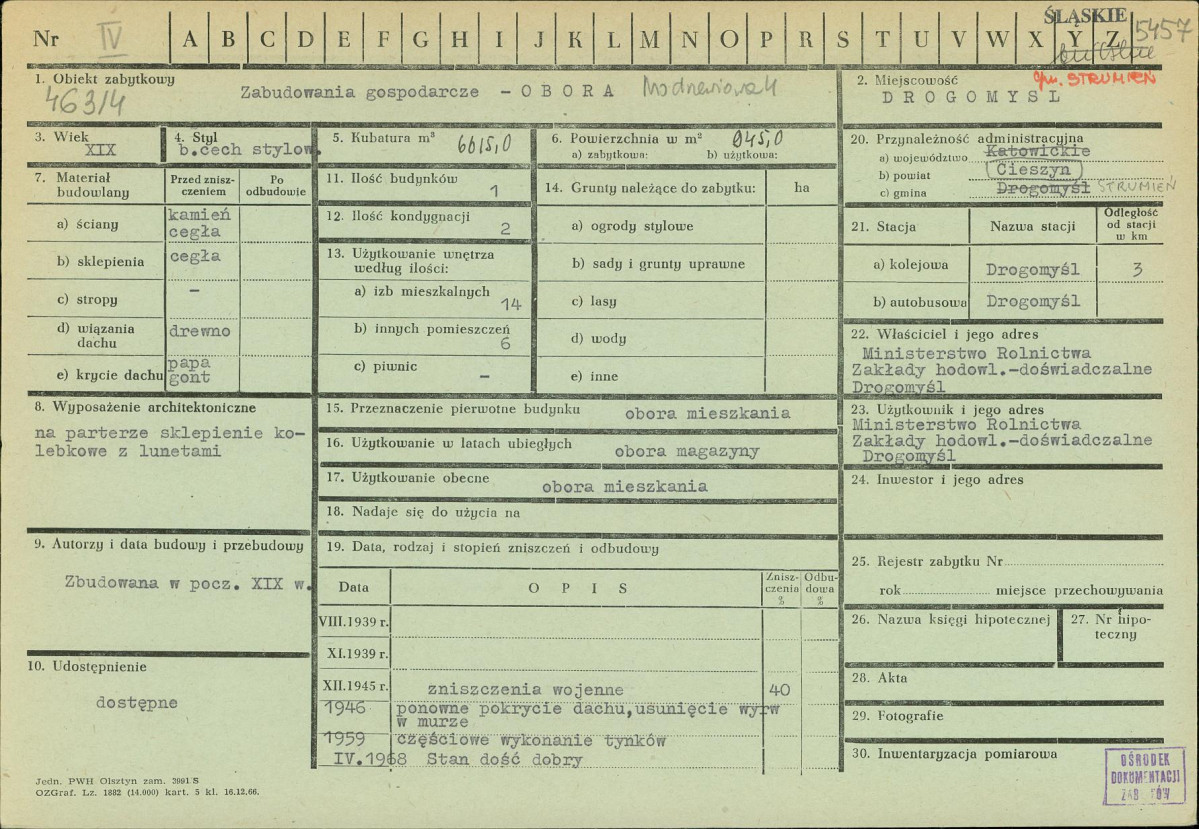 ŚLĄSKIE
5457
Nr IV A B C D E F G H I J K L M N O P R S T U V W X Y Z
1. Obiekt zabytkowy
463/4
Zabudowania gospodarcze - OBORA
2. Miejscowość gm. STRUMIEŃ
DROGOMYSL
3. Wiek
XIX
4. Styl
b.cech stylow.
5. Kubatura m³ 6615,0
6. Powierzchnia w m² 945,0
a) zabytkowa: b) użytkowa:
7. Materiał budowlany
Przed zniszczeniem
Po odbudowie
a) ściany kamień
cegła
b) sklepienia cegła
c) stropy -
d) wiązania dachu drewno
e) krycie dachu papa
gont
8. Wyposażenie architektoniczne
na parterze sklepienie ko-
lebkowe z lunetami
9. Autorzy i data budowy i przebudowy
Zbudowana w pocz. XIX w.
10. Udostępnienie
dostępne
11. Ilość budynków 1
12. Ilość kondygnacji 2
13. Użytkowanie wnętrza
według ilości:
a) izb mieszkalnych 14
b) innych pomieszczeń 6
c) piwnic -
14. Grunty należące do zabytku: ha
a) ogrody stylowe
b) sady i grunty uprawne
c) lasy
d) wody
e) inne
15. Przeznaczenie pierwotne budynku obora mieszkania
16. Użytkowanie w latach ubiegłych obora magazyny
17. Użytkowanie obecne obora mieszkania
18. Nadaje się do użycia na
19. Data, rodzaj i stopień zniszczeń i odbudowy
Data OPIS Znisz-
czenia
% Odbu-
dowa
%
VIII.1939 r.
XI.1939 r.
XII.1945 r. zniszczenia wojenne 40
1946 ponowne pokrycie dachu,usunięcie wyrw
w murze
1959 częściowe wykonanie tynków
IV.1968 Stan dość dobry
20. Przynależność administracyjna
a) województwo Katowickie
b) powiat Cieszyn
c) gmina Drogomyśl STRUMIEŃ
21. Stacja Nazwa stacji Odległość
od stacji
w km
a) kolejowa Drogomyśl 3
b) autobusowa Drogomyśl
22. Właściciel i jego adres
Ministerstwo Rolnictwa
Zakłady hodowl.-doświadczalne
Drogomyśl
23. Użytkownik i jego adres
Ministerstwo Rolnictwa
Zakłady hodowl.-doświadczalne
Drogomyśl
24. Inwestor i jego adres
25. Rejestr zabytku Nr
rok miejsce przechowywania
26. Nazwa księgi hipotecznej
27. Nr hipo-
teczny
28. Akta
29. Fotografie
30. Inwentaryzacja pomiarowa
OŚRODEK
DOKUMENTACJI
ZABYTKÓW
Jedn. PWH Olsztyn zam. 3991 S
OZGraf. Lz. 1882 (14.000) kart. 5 kl. 16.12.66.